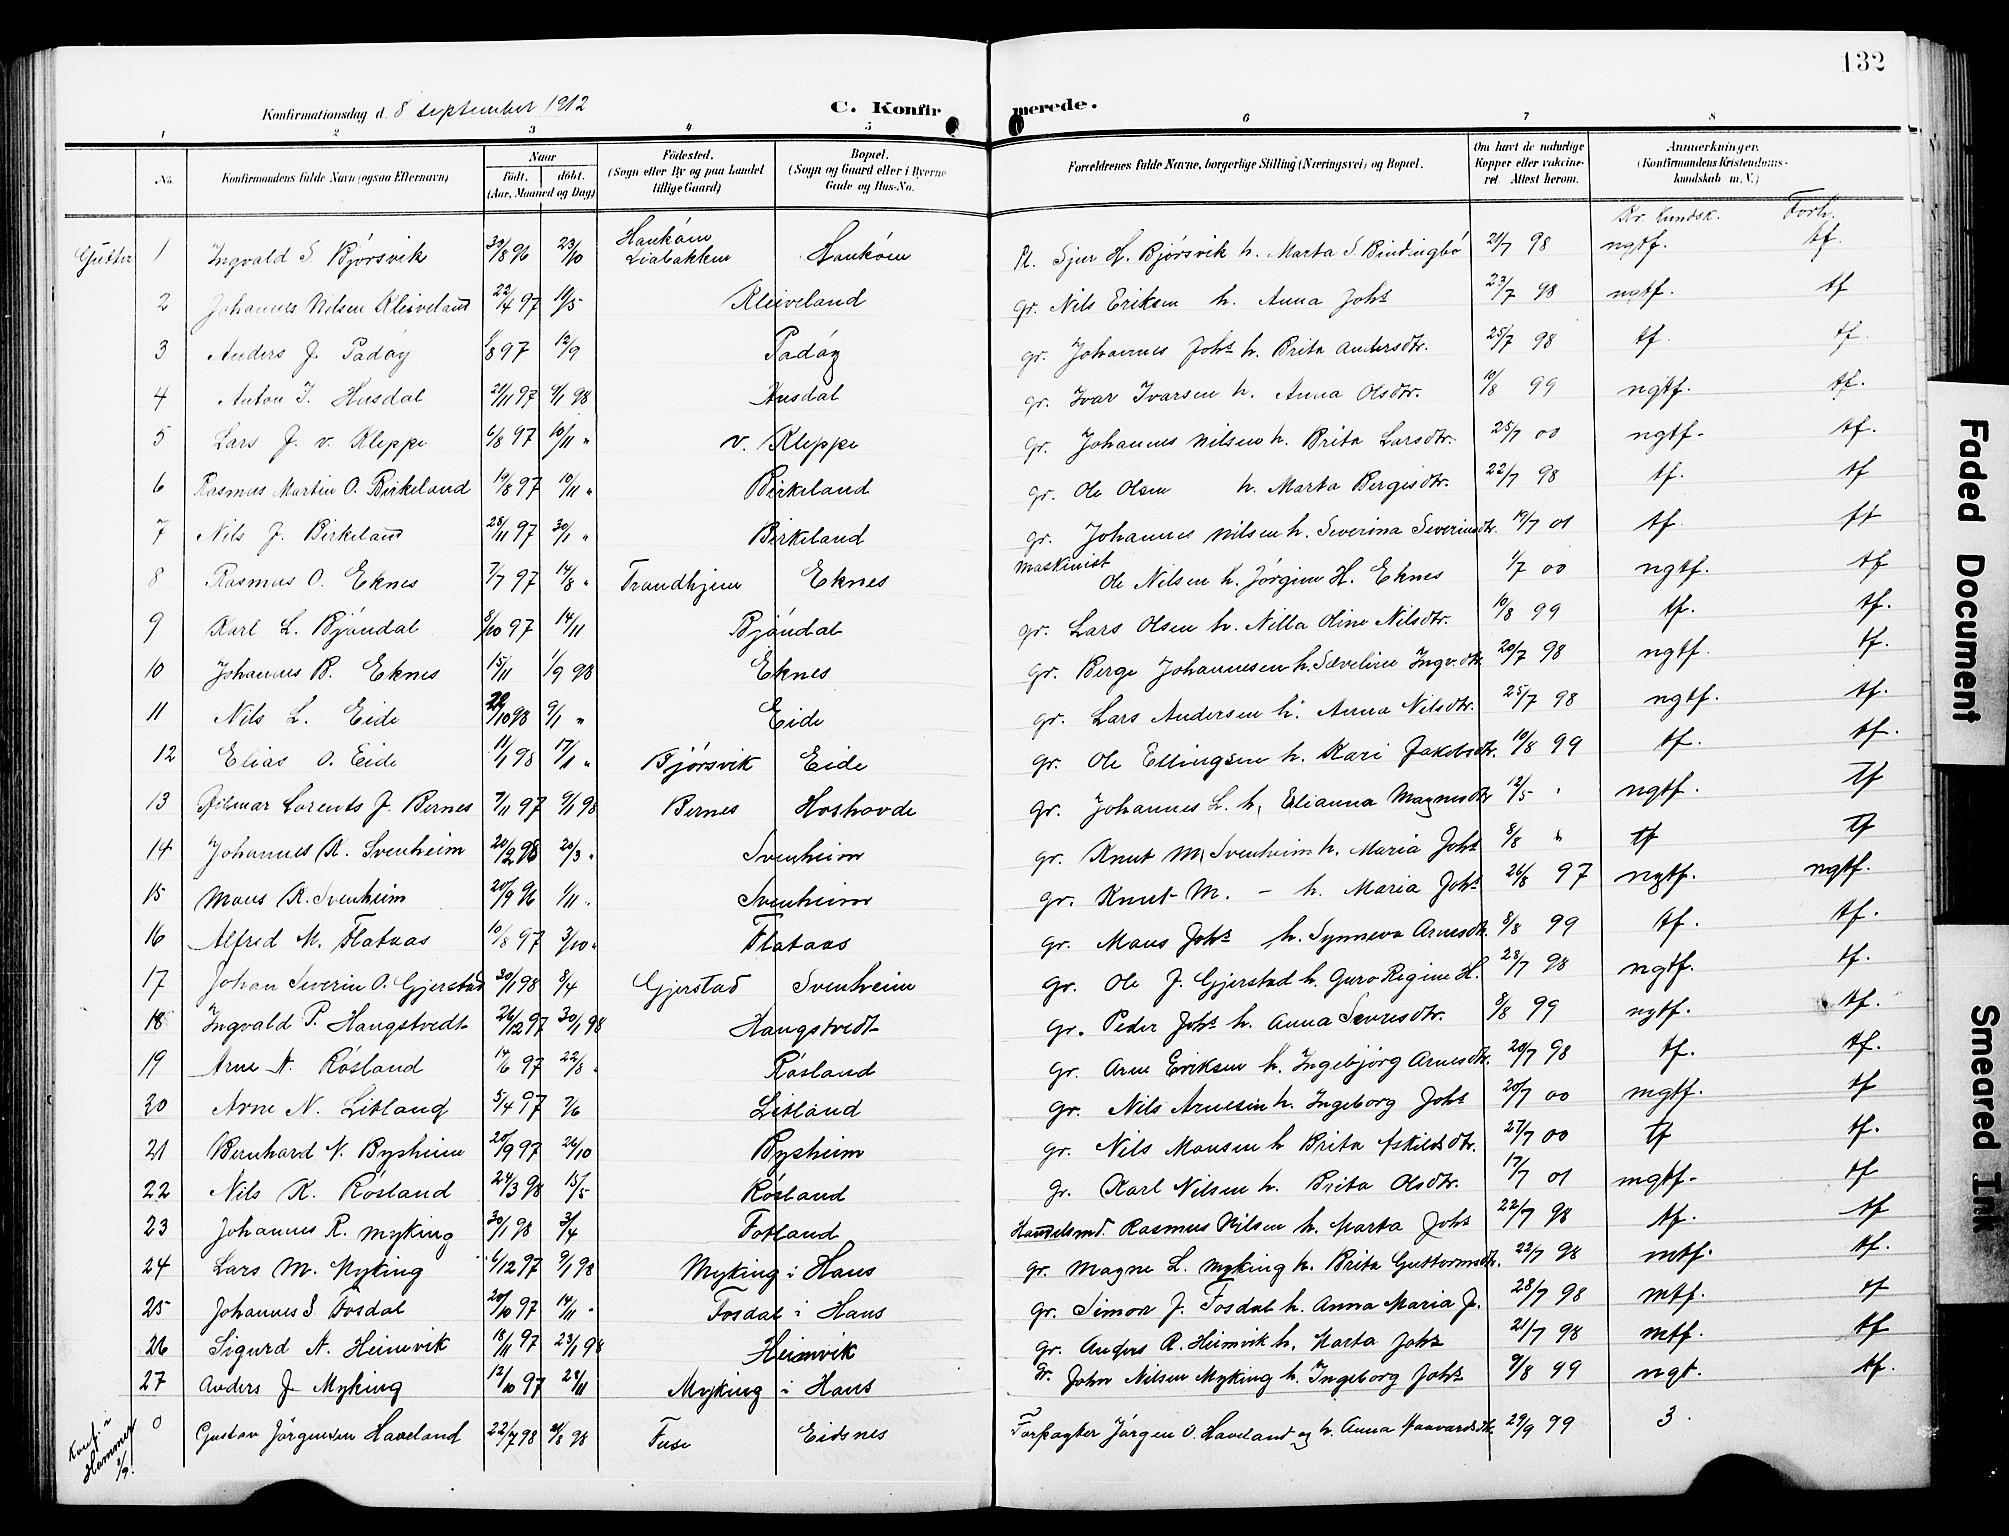 132
Konfirmationsdag d. 8 September 1912 C. Konfirmerede.
1 2 3 4 5 6 7 8
No. Konfirmandens fulde Navn (ogsaa Efternavn) Naar født. døbt. (Aar, Maaned og Dag) Fødested. (Sogn eller By og paa Landet tillige Gaard) Bopæl. (Sogn og Gaard eller i Byerne Gade og Hus-No. Forældrenes fulde Navne, borgerlige Stilling (Næringsvei) og Bopæl. Om havt de naturlige Kopper eller vaccineret. Attest herom. Anmerkninger. (Konfirmandens Kristendomskundskab m. V.)
Kr. Kundsk. Forh.
Gutter 1 Ingvald S. Bjørsvik 30/8 96 23/10 Haukøen Liabakken Haukøen Sjur H. Bjørsvik h. Marta S. Bindingbø 21/7 98 ngtf. tf.
2 Johannes Nilsen Kleiveland 22/4 97 11/5 Kleiveland gr. Nils Eriksen h. Anna Johs 23/7 98 ngtf. tf
3 Anders J. Padøy 1/8 97 12/9 Padøy gr. Johannes Johs h. Brita Andersdtr. 25/7 98 tf. tf.
4 Anton I. Husdal 21/11 97 9/1 98 Husdal gr. Ivar Ivarsen h. Anna Olsdtr. 10/8 99 ngtf. tf.
5 Lars J. v. Kleppe 6/8 97 10/11 " v. Kleppe gr. Johannes Nilsen h. Brita Larsdtr. 25/7 00 ngtf. tf.
6 Rasmus Martin O. Birkeland 19/8 97 10/11 " Birkeland gr. Ole Olsen h. Marta Bergesdtr. 22/7 98 tf. tf
7 Nils J. Birkeland 28/11 97 30/1 " Birkeland gr. Johannes Nilsen h. Severina Severinsdtr. 19/7 01 tf. tf
8 Rasmus O. Eknes 7/7 97 14/8 " Trondhjem Eknes Maskinist Ole Nilsen h. Jørgine H. Eknes 1/7 00 ngtf. tf
9 Karl L. Bjøndal 8/10 97 14/11 Bjøndal gr. Lars Olsen h. Nilla Oline Nilsdtr. 10/8 99 tf. tf.
10 Johannes B. Eknes 15/11 1/9 98 Eknes gr. Berge Johannesen h. Sæveline Ingv.dtr. 20/7 98 ngtf. tf.
11 Nils L. Eide 22/10 98 9/1 " Eide gr. Lars Andersen h. Anna Nilsdtr. 25/7 98 ngtf. tf.
12 Elias O. Eide 11/1 98 17/1 " Bjørsvik Eide gr. Ole Ellingsen h. Kari Jakobsdtr. 10/8 99 tf. tf.
13 Hilmar Lorents J. Bernes 7/11 97 9/1 98 Bernes Hoshovde gr. Johannes L. h. Elianna Magnesdtr 12/5 " ngtf. tf
14 Johannes K. Svenheim 20/2 98 20/3 " Svenheim gr. Knut M. Svenheim h. Maria Johs 8/8 " tf tf
15 Mons K. Svenheim 20/9 96 1/11 " Svenheim gr. Knut M. - h. Maria Johs 26/8 97 ngtf. ngtf.
16 Alfred M. Flataas 10/8 97 3/10 " Flataas gr. Mons Johs h. Synneva Arnesdtr. 8/8 99 tf. tf.
17 Johan Severin O. Gjerstad 20/1 98 8/4 Gjerstad Svenheim gr. Ole J. Gjerstad h. Guro Regine H. 28/7 98 ngtf. tf.
18 Ingvald P. Haugstvedt 26/12 97 30/1 98 Haugstvedt gr. Peder Johs h. Anna Sevresdtr. 8/8 99 ngtf. tf.
19 Arne A. Røsland 14/6 97 22/8 " Røsland gr. Arne Eriksen h. Ingebjørg Arnesdtr. 20/7 98 tf. tf.
20 Arne N. Litland 5/4 97 7/6 Litland gr. Nils Arnesen h. Ingeborg Johs 20/7 00 mgtf. tf
21 Bernhard N. Bysheim 20/9 97 26/10 Bysheim gr. Nils Monsen h Brita Askildsdtr. 27/7 00 tf tf.
22 Nils K. Røsland 24/3 98 15/5 Røsland gr. Karl Nilsen h. Brita Olsdtr. 17/7 01 mgtf. tf
23 Johannes R. Myking 30/1 98 3/4 Fotland Handelsmd. Rasmus Nilsen h. Marta Johs 22/7 98 tf. tf
24 Lars M. Myking 6/12 97 9/1 98 Myking i Haus gr. Magne L. Myking h. Brita Guttormsdtr. 22/7 98 mtf. tf.
25 Johannes S. Fosdal 20/10 97 14/11 " Fosdal i Haus gr. Simon J. Fosdal h. Anna Maria J. 28/7 98 mtf. tf
26 Sigurd A. Heimvik 18/11 97 23/1 98 Heimvik gr. Anders R. Heimvik h. Marta Johs 21/7 98 mtf. tf
27 Anders J Myking 12/10 97 28/11 Myking i Haus gr. John Nilsen Myking h. Ingeborg Johs 9/8 99 ngt. tf.
Konf. i Hammer 2/9! 0 Gustav Jørgensen Haveland 22/7 98 21/8 98 Fuse Eidsnes Forpagter Jørgen O. Haveland og h. Anna Haavardsdtr. 29/9 99 3.
Faded Document
Smeared Ink